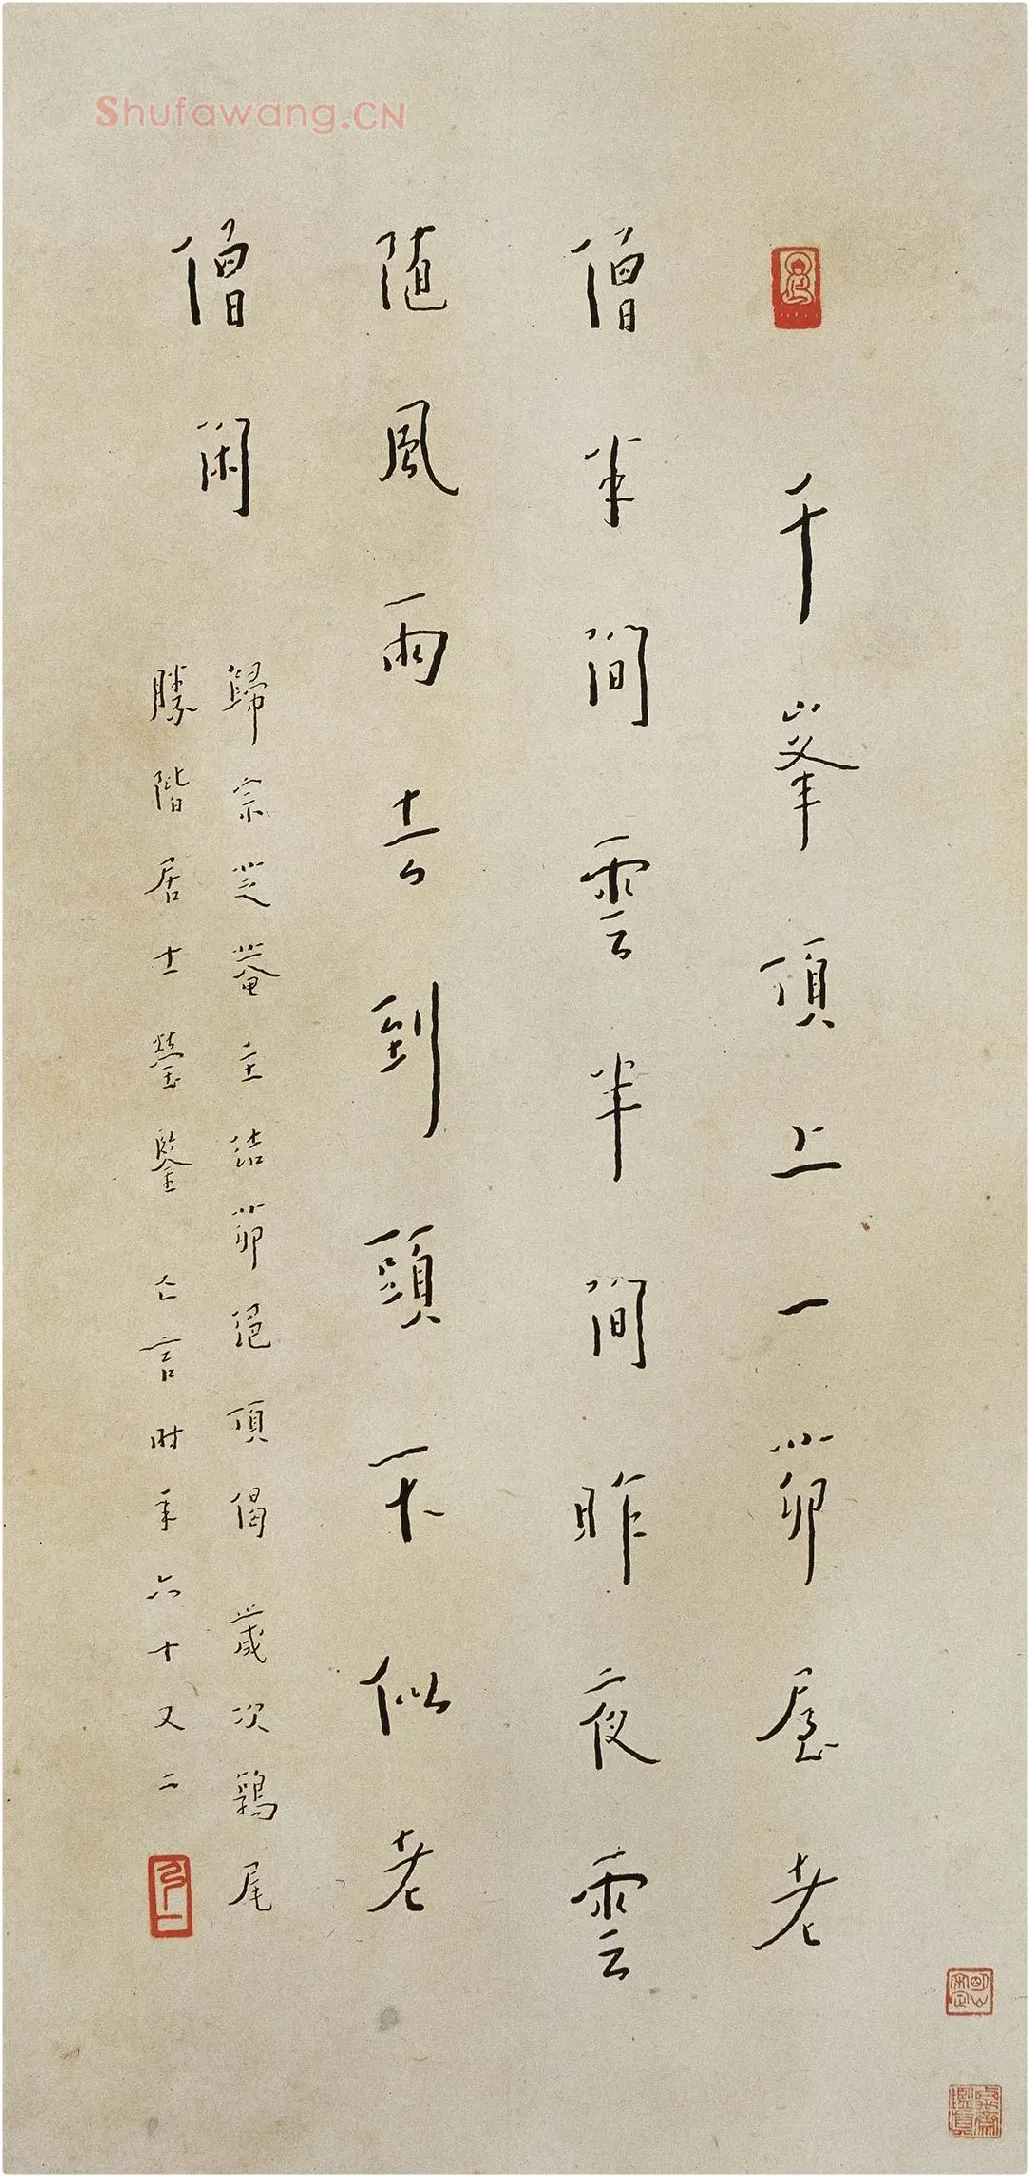 Shufawang.CN
千峯頂上一茆屋老
僧半間雲半間昨夜雲
随風雨去到頭不似老
僧閑
歸宗芝菴主結茆絕頂偈 歲次鶉尾
勝階居士瑩鑒 亡言時年六十又二